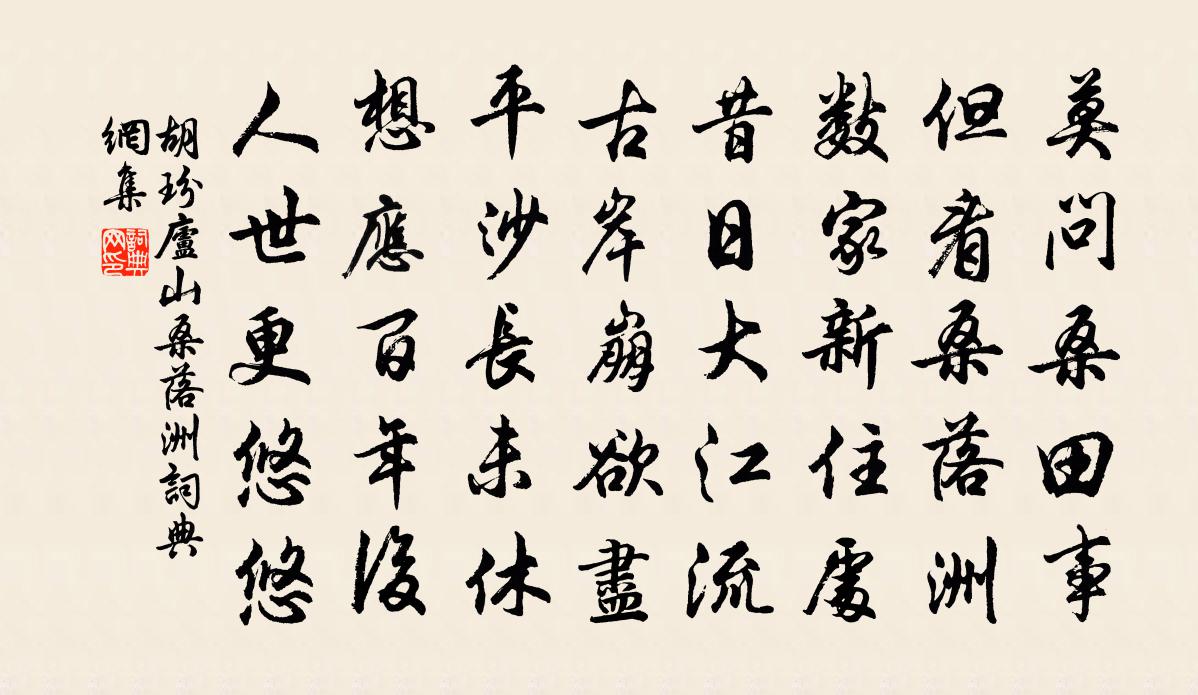 莫問桑田事
但看桑落洲
數家新住處
昔日大江流
古岸崩欲盡
平沙長未休
想應百年後
人世更悠悠
胡玢廬山桑落洲詞典
網集
詞典
网印